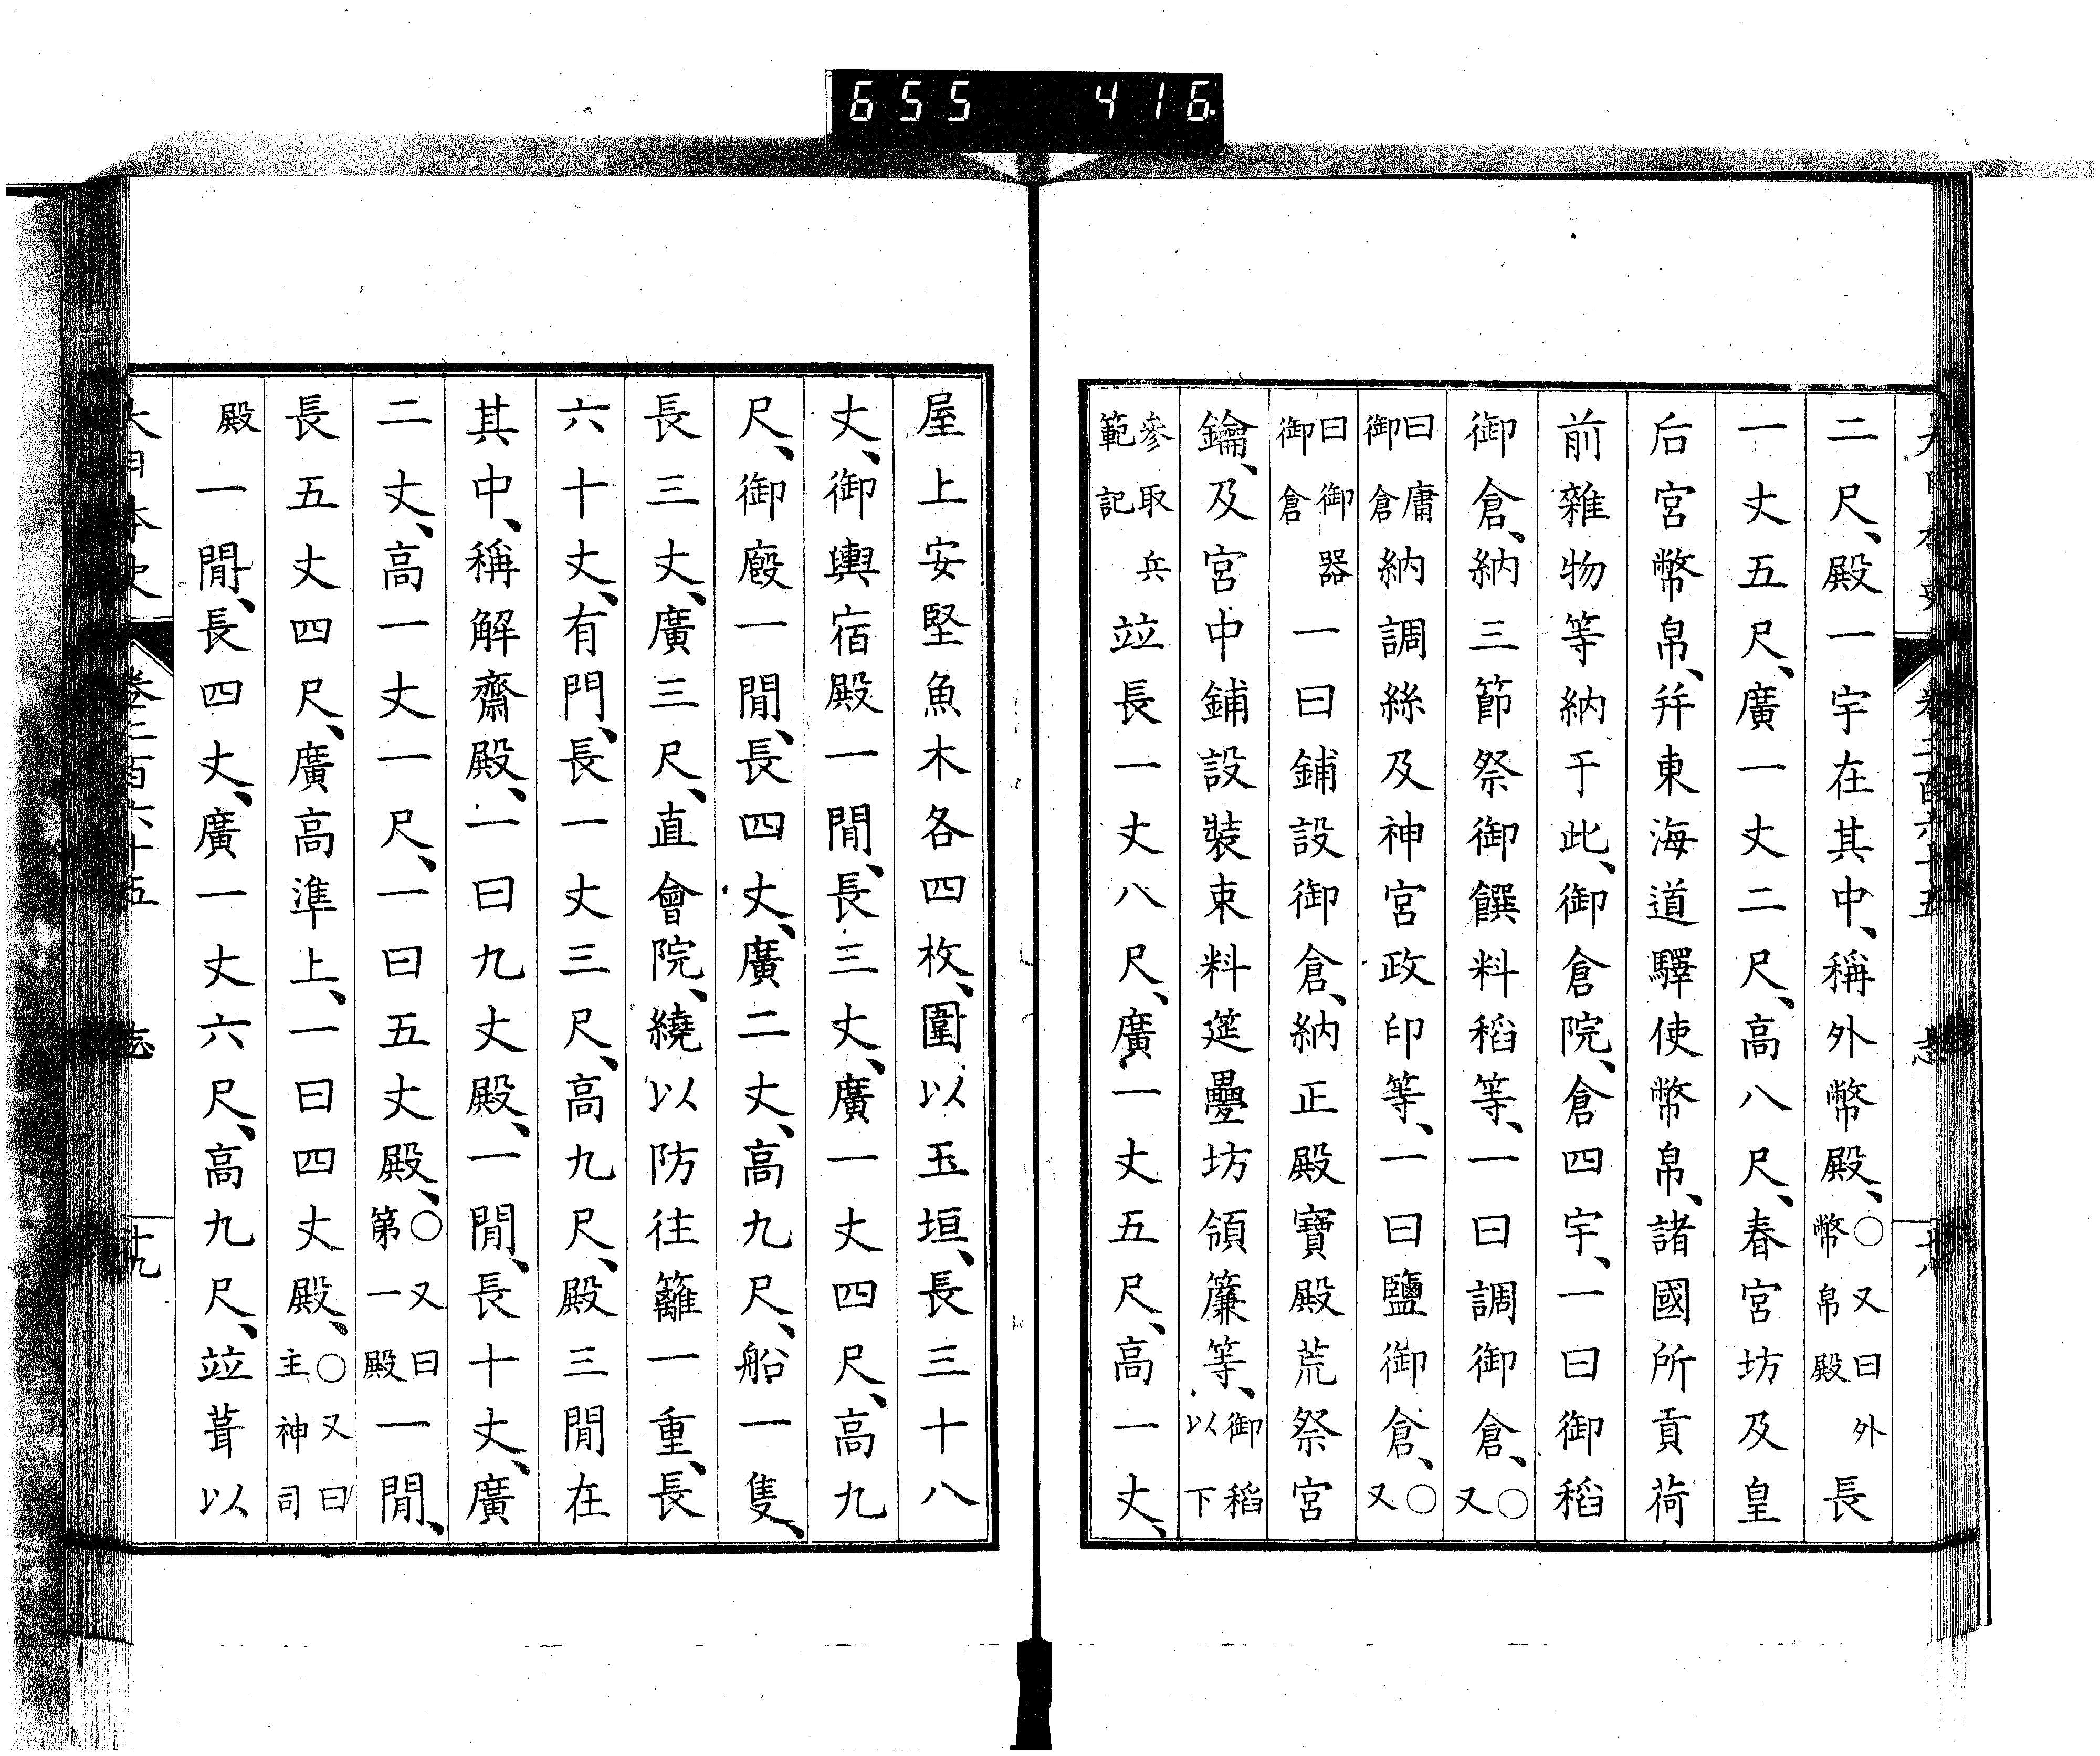 655 416
大日本史 卷二百六十五 志 十八
二尺、殿一宇在其中、稱外幣殿、○又曰外幣帛殿長
一丈五尺、廣一丈二尺、高八尺、春宮坊及皇
后宮幣帛、幷東海道驛使幣帛、諸國所貢荷
前雜物等納于此、御倉院、倉四宇、一曰御稻
御倉、納三節祭御饌料稻等、一曰調御倉、○又
曰庸御倉納調絲及神宮政印等、一曰鹽御倉、○又
曰御器御倉一曰鋪設御倉、納正殿寶殿荒祭宮
鑰、及宮中鋪設裝束料筵疊坊領簾等、御稻以下
參取兵範記竝長一丈八尺、廣一丈五尺、高一丈、
屋上安堅魚木各四枚、圍以玉垣、長三十八
丈、御輿宿殿一閒、長三丈、廣一丈四尺、高九
尺、御廏一閒、長四丈、廣二丈、高九尺、船一隻、
長三丈、廣三尺、直會院、繞以防往籬一重、長
六十丈、有門、長一丈三尺、高九尺、殿三閒在
其中、稱解齋殿、一曰九丈殿、一閒、長十丈、廣
二丈、高一丈一尺、一曰五丈殿、○又曰第一殿一閒、
長五丈四尺、廣高準上、一曰四丈殿、○又曰主神司
殿一閒、長四丈、廣一丈六尺、高九尺、竝葺以
大日本史 卷二百六十五 志 十九